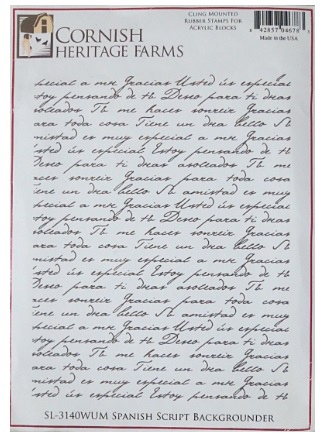 CORNISH
HERITAGE FARMS
CLING MOUNTED
RUBBER STAMPS FOR
ACRYLIC BLOCKS
Made in the USA
pecial a mi Gracias Usted és especial
toy pensando de ti Deseo para ti días
soleados Tú me haces sonreir Gracias
ara toda cosa Tiene un día bello Su
mistad es muy especial a mi Gracias
sted és especial Estoy pensando de ti
Deseo para ti días asoleados Tú me
aces sonreir Gracias para toda cosa
iene un día bello Su amistad es muy
special a mi Gracias Usted és especial
stoy pensando de ti Deseo para ti días
soleados Tú me haces sonreir Gracias
ara toda cosa Tiene un día bello Su
mistad es muy especial a mi Gracias
sted és especial Estoy pensando de ti
Deseo para ti días asoleados Tú me
aces sonreir Gracias para toda cosa
iene un día bello Su amistad es muy
special a mi Gracias Usted és especial
stoy pensando de ti Deseo para ti días
soleados Tú me haces sonreir Gracias
ara toda cosa Tiene un día bello Su
mistad es muy especial a mi Gracias
sted és especial Estoy pensando de ti
SL-3140WUM SPANISH SCRIPT BACKGROUNDER